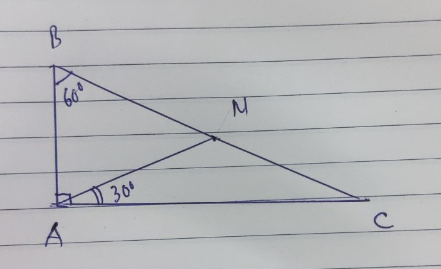 B
60°
M
30°
A
C